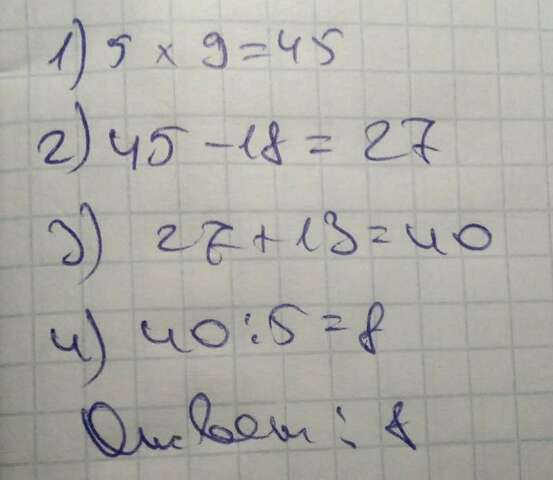 1) 5 × 9 = 45
2) 45 - 18 = 27
3) 27 + 13 = 40
4) 40 : 5 = 8
Ответ: 8